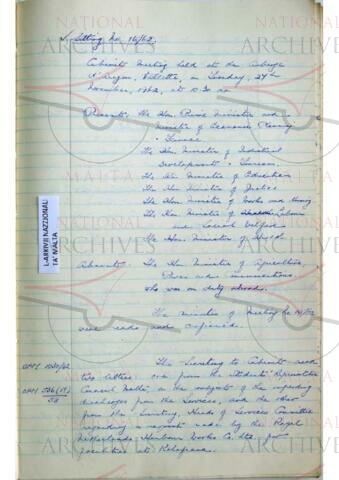 Sitting No. 16/62.
Cabinet Meeting held at the Auberge
d'Aragon, Valletta, on Tuesday, 27th
November, 1962, at 10.30 a.m.
Present: The Hon. Prime Minister and
Minister of Economic Planning
& Finance
The Hon. Minister of Industrial
Development & Tourism
The Hon. Minister of Education
The Hon. Minister of Justice
The Hon. Minister of Works and Housing
The Hon. Minister of Labour
and Social Welfare
The Hon. Minister of Health
Absent: The Hon. Minister of Agriculture,
Power and Communications,
who was on duty abroad.
The minutes of Meeting No. 15/62
were read and confirmed.
The Secretary to Cabinet read
two letters: one from the Students Representative
Council Malta, on the subject of the impending
discharges from the Services, and the other
from the Secretary, Heads of Services Committee
regarding request made by the Royal
Netherlands Harbour Works Co. Ltd. for
facilities at Kalafrana.
OPM
OPM
L-ARKIVJI NAZZJONALI
TA' MALTA
NATIONAL
ARCHIVES
NATIONAL
ARCHIVES
NATIONAL
ARCHIVES